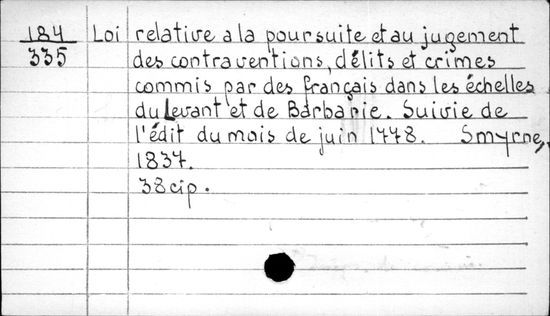 184 Loi relative a la poursuite et au jugement
335 des contraventions, délits et crimes
commis par des français dans les échelles
du Levant et de Barbarie. Suivie de
l'édit du mois de juin 1778. Smyrne,
1837.
38 cip.